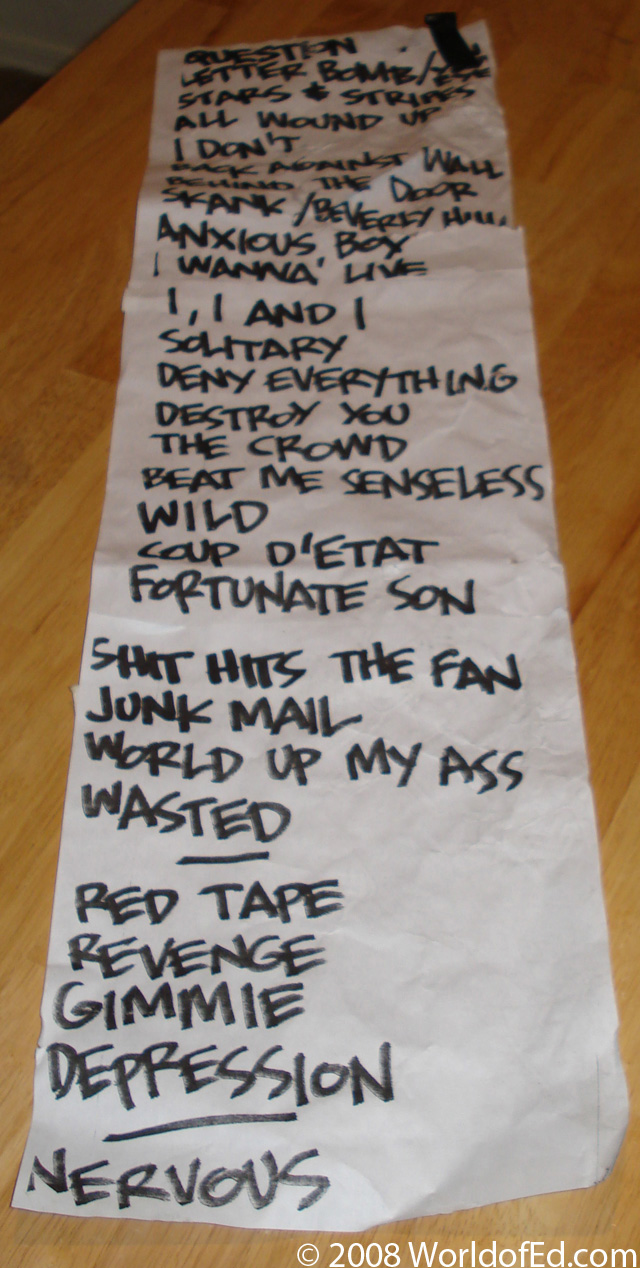 QUESTION
LETTER BOMB/
STARS & STRIPES
ALL WOUND UP
I DON'T
BACK AGAINST WALL
BEHIND THE DOOR
SKANK / BEVERLY HILLS
ANXIOUS BOY
I WANNA' LIVE
I, I AND I
SOLITARY
DENY EVERYTHING
DESTROY YOU
THE CROWD
BEAT ME SENSELESS
WILD
COUP D'ETAT
FORTUNATE SON
SHIT HITS THE FAN
JUNK MAIL
WORLD UP MY ASS
WASTED
RED TAPE
REVENGE
GIMMIE
DEPRESSION
NERVOUS
© 2008 WorldofEd.com